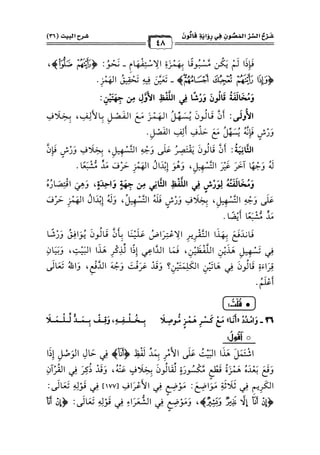 شرح البيت (٣٦)
شَرْحُ السِّرِّ المَصُونِ فِي رِوَايَةِ قَالُونَ
٤٨
فَإِذَا لَمْ يَكُنْ مَسْبُوقًا بِهَمْزَةِ الِاسْتِفْهَامِ ـ نَحْوُ: ﴿رَأَيْتَهُمْ ضَلُّوٓاْ﴾،
﴿وَإِذَا رَأَيْتَهُمْ تُعْجِبُكَ أَجْسَامُهُمْ﴾ ـ تَعَيَّنَ فِيهِ تَحْقِيقُ الهَمْزِ.
وَمُخَالَفَةُ قَالُونَ وَرْشًا فِي اللَّفْظِ الأَوَّلِ مِنْ جِهَتَيْنِ:
الأُولَى: أَنَّ قَالُونَ يُسَهِّلُ الهَمْزَ مَعَ الفَصْلِ بِالأَلِفِ، بِخِلَافِ
وَرْشٍ فَإِنَّهُ يُسَهِّلُ مَعَ حَذْفِ أَلِفِ الفَصْلِ.
الثَّانِيَةُ: أَنَّ قَالُونَ يَقْتَصِرُ عَلَى وَجْهِ التَّسْهِيلِ، بِخِلَافِ وَرْشٍ فَإِنَّ
لَهُ وَجْهًا آخَرَ غَيْرَ التَّسْهِيلِ، وَهُوَ إِبْدَالُ الهَمْزِ حَرْفَ مَدٍّ مُشْبَعًا.
وَمُخَالَفَتُهُ لِوَرْشٍ فِي اللَّفْظِ الثَّانِي مِنْ جِهَةٍ وَاحِدَةٍ، وَهِيَ اقْتِصَارُهُ
عَلَى وَجْهِ التَّسْهِيلِ، بِخِلَافِ وَرْشٍ، فَلَهُ التَّسْهِيلُ، وَلَهُ إِبْدَالُ الهَمْزِ حَرْفَ
مَدٍّ مُشْبَعًا أَيْضًا.
فَانْدَفَعَ بِهَذَا التَّقْرِيرِ الِاعْتِرَاضُ عَلَيْنَا بِأَنَّ قَالُونَ يُوَافِقُ وَرْشًا
فِي تَسْهِيلِ هَذَيْنِ اللَّفْظَيْنِ، فَمَا الدَّاعِي إِذًا لِذِكْرِ هَذَا البَيْتِ، وَبَيَانِ
قِرَاءَةِ قَالُونَ فِي هَاتَيْنِ الكَلِمَتَيْنِ؟ وَقَدْ عَرَفْتَ وَجْهَ الدَّفْعِ، وَاللهُ تَعَالَى
أَعْلَمُ.
• قُلْتُ:
٣٦ ـ وَامْدُدْ «أَنَا» مَعْ كَسْرِ هَمْزٍ مُوصِلًا بِخُلْفِهِ، وَقِفْ بِمَدٍّ لِلْمَلَا
○ أَقُولُ:
اشْتَمَلَ هَذَا البَيْتُ عَلَى الأَمْرِ بِمَدِّ لَفْظِ ﴿أَنَا۠﴾ فِي حَالِ الوَصْلِ إِذَا
وَقَعَ بَعْدَهُ هَمْزَةُ قَطْعٍ مَكْسُورَةٌ لِقَالُونَ بِخِلَافٍ عَنْهُ، وَقَدْ ذُكِرَ فِي القُرْآنِ
الكَرِيمِ فِي ثَلَاثَةِ مَوَاضِعَ: مَوْضِعٍ فِي الأَعْرَافِ [١٨٨] فِي قَوْلِهِ تَعَالَى:
﴿إِنْ أَنَا۠ إِلَّا نَذِيرٌ وَبَشِيرٌ﴾، وَمَوْضِعٍ فِي الشُّعَرَاءِ فِي قَوْلِهِ تَعَالَى: ﴿إِنْ أَنَا۠